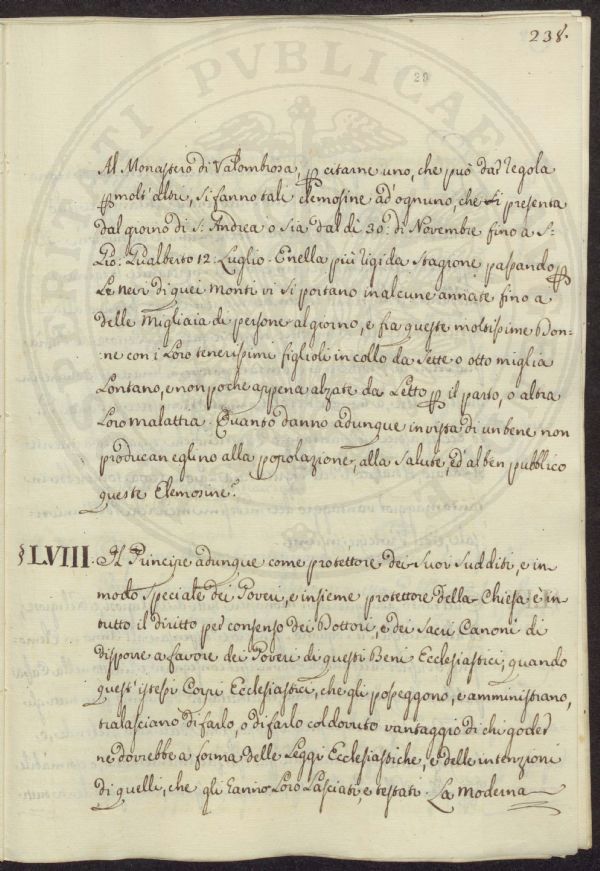 238.
20
PROSPERITATI PVBLICAE
Al Monastero di Valombrosa, p citarne uno, che può dar regola
p molt' altri, si fanno tali elemosine ad' ognuno, che si presenta
dal giorno di S. Andrea o sia dal dì 30: di Novembre fino a S.
Gio: Gualberto 12: Luglio. E nella più rigida stagione passando p
Le nevi di quei monti vi si portano in alcune annate fino a
delle Migliaia di persone al giorno, e fra queste moltissime Don-
:ne con i Loro tenerissimi figlioli in collo da Sette o otto miglia
Lontano, e non poche appena alzate da Letto p il parto, o altra
Loro malattia. Quanto danno adunque in vista di un bene non
producan eglino alla popolazione, alla Salute, ed' al ben pubblico
queste Elemosine?
§LVIII. Il Principe adunque come protettore dei Suoi Sudditi, e in
modo Speciale dei Poveri, e insieme protettore della Chiesa è in
tutto il diritto per consenso dei Dottori, e dei Sacri Canoni di
disporre a favore dei Poveri di questi Beni Ecclesiastici, quando
quest' istessi Corpi Ecclesiastici, che gli posseggono, e amministrano,
tralasciano di farlo, o di farlo col dovuto vantaggio di chi goder
ne dovrebbe a forma delle Leggi Ecclesiastiche, e delle intenzioni
di quelli, che gli hanno Loro Lasciati, e testati. La Moderna